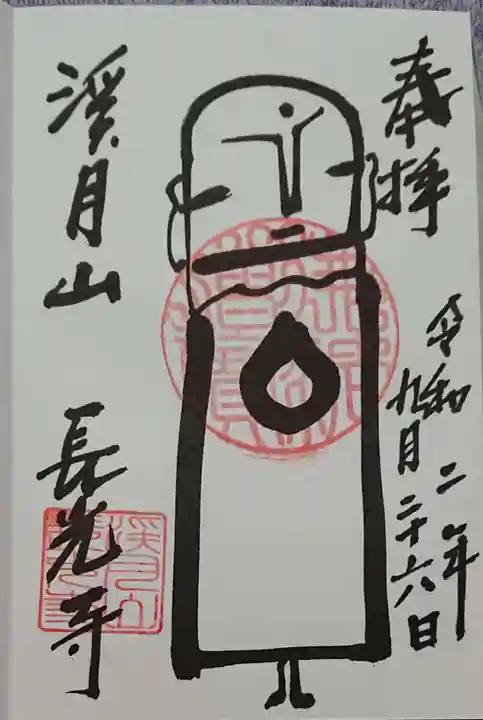 奉拝
令和二年
九月二十六日
溪月山
長光寺